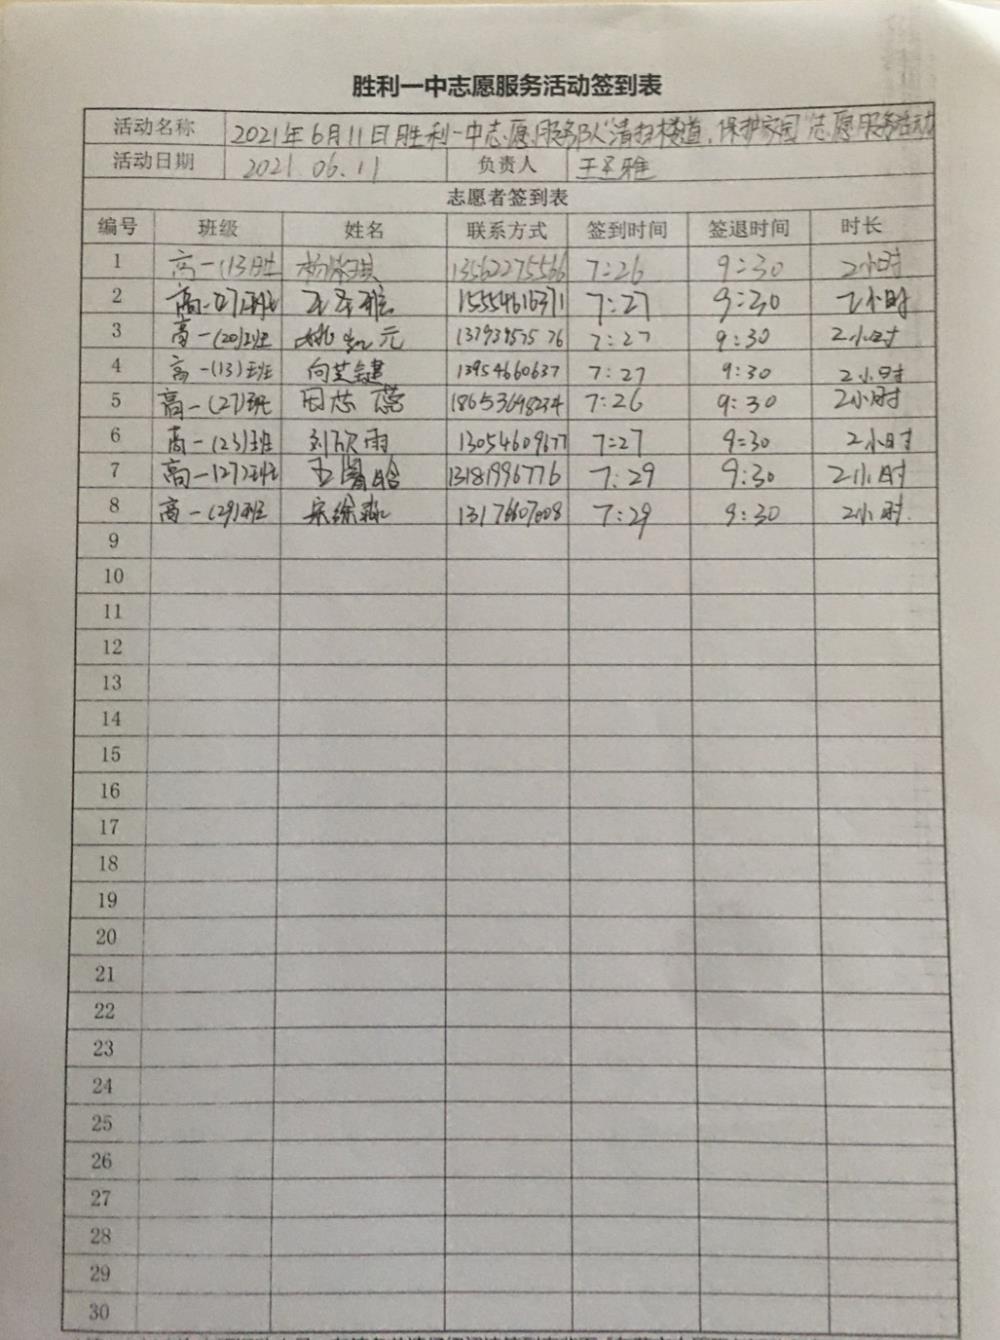 胜利一中志愿服务活动签到表
活动名称 2021年6月11日胜利一中志愿服务队"清扫楼道,保护家园"志愿服务活动
活动日期 2021.06.11 负责人 王圣雅
志愿者签到表
编号 班级 姓名 联系方式 签到时间 签退时间 时长
1 高一(13)班 13562275566 7:26 9:30 2小时
2 高一 班 王圣雅 15554616371 7:27 9:30 2小时
3 高一(20)班 元 7:27 9:30 2小时
4 高一(13)班 向芝键 13954660637 7:27 9:30 2小时
5 高一(27)班 田芯蕊 18653698234 7:26 9:30 2小时
6 高一(23)班 刘欣雨 13054609677 7:27 9:30 2小时
7 高一(27)班 王 晗 13181996776 7:29 9:30 2小时
8 高一(29)班 宋徐淼 13176607008 7:29 9:30 2小时
9
10
11
12
13
14
15
16
17
18
19
20
21
22
23
24
25
26
27
28
29
30